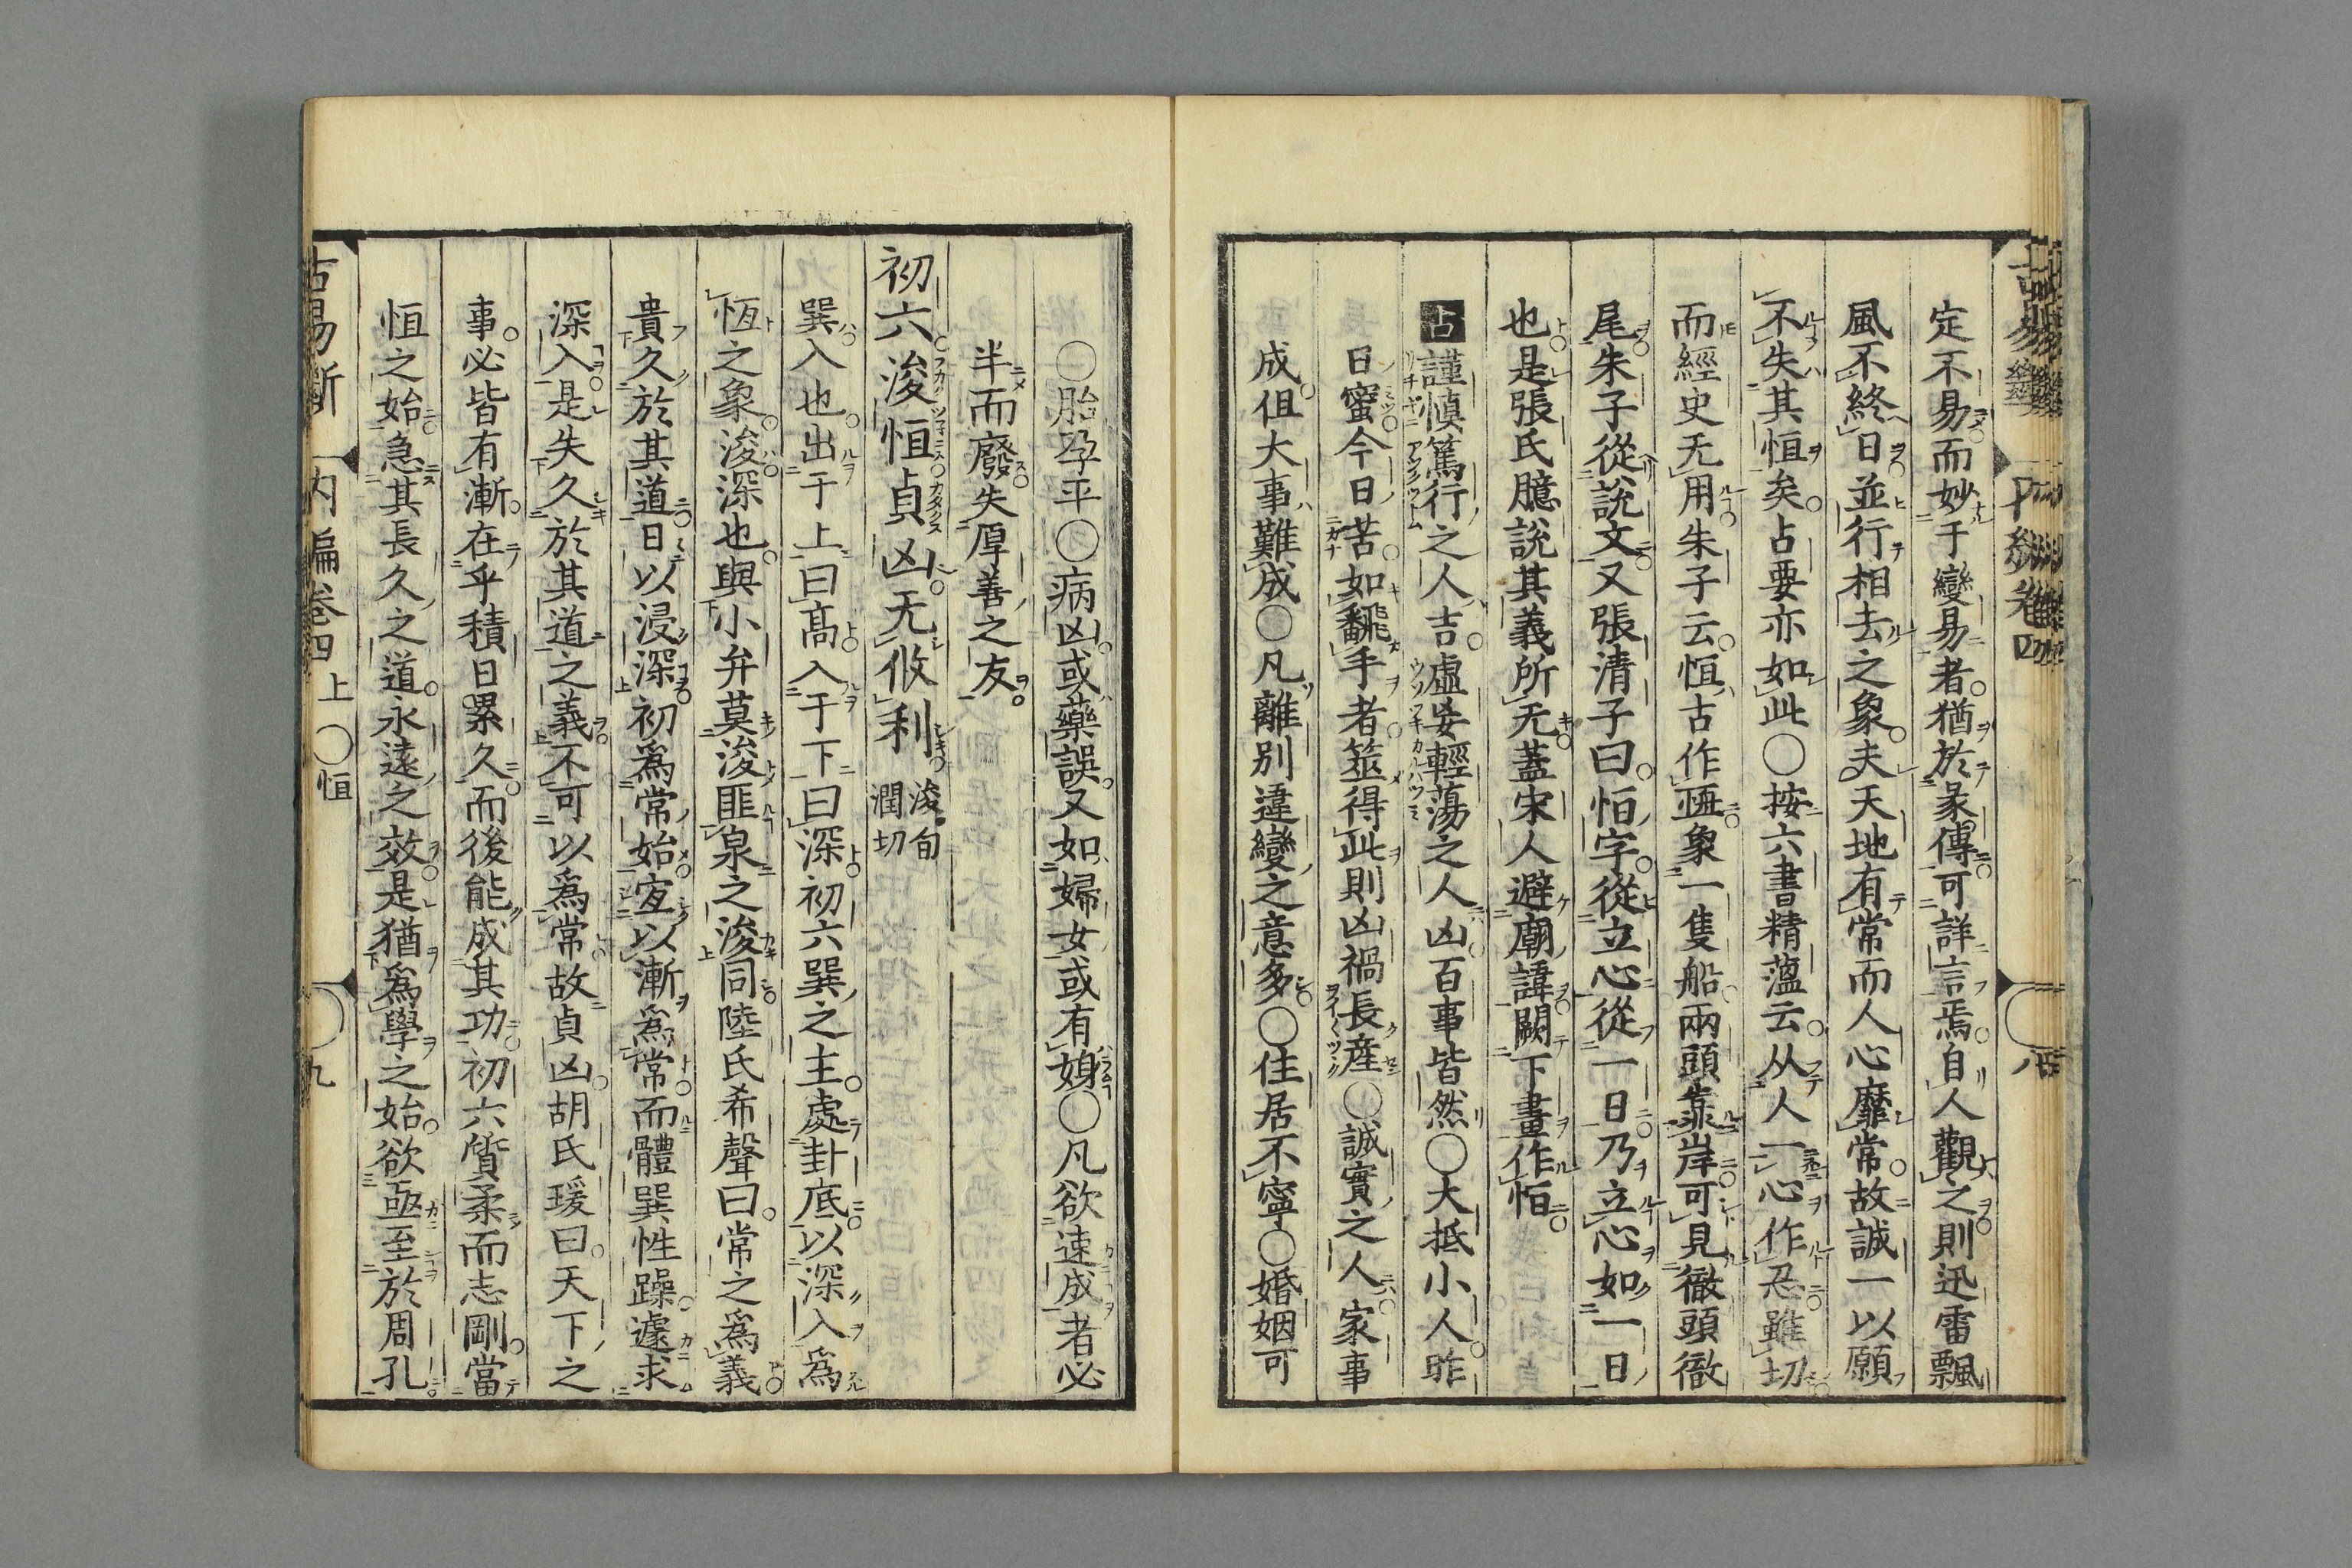 定不易而妙于變易者猶於彖傳可詳言焉自人觀之則迅雷飄
風不終日並行相去之象夫天地有常而人心靡常故誠一以願
不失其恒矣占要亦如此○按六書精薀云从人一心作忍雖切
而經史无用朱子云恒古作㔰象一隻船兩頭靠岸可見徹頭徹
尾朱子從說文又張清子曰怕字從立心從一日乃立心如一日
也是張氏臆說其義所无蓋宋人避廟諱闕下畫作怕
占謹愼篤行之人吉虛妄輕蕩之人凶百事皆然○大抵小人昨
日蜜今日苦如翻手者筮得此則凶禍長産○誠實之人家事
成但大事難成○凡離别違變之意多○住居不寧○婚姻可
○胎孕平○病凶或藥誤又如婦女或有娠○凡欲速成者必
半而廢失厚善之友
初六浚恒貞凶无攸利浚旬潤切
巽入也出于上曰高入于下曰深初六巽之主處卦底以深入爲
恆之象浚深也與小弁莫浚匪泉之浚同陸氏希聲曰常之爲義
貴久於其道日以浸深初爲常始宐以漸爲常而體巽性躁遽求
深入是失久於其道之義不可以爲常故貞凶胡氏瑗曰天下之
事必皆有漸在乎積日累久而後能成其功初六質柔而志剛當
恒之始急其長久之道永遠之效是猶爲學之始欲亟至於周孔
古易斷 内編卷四上 ○恒 九